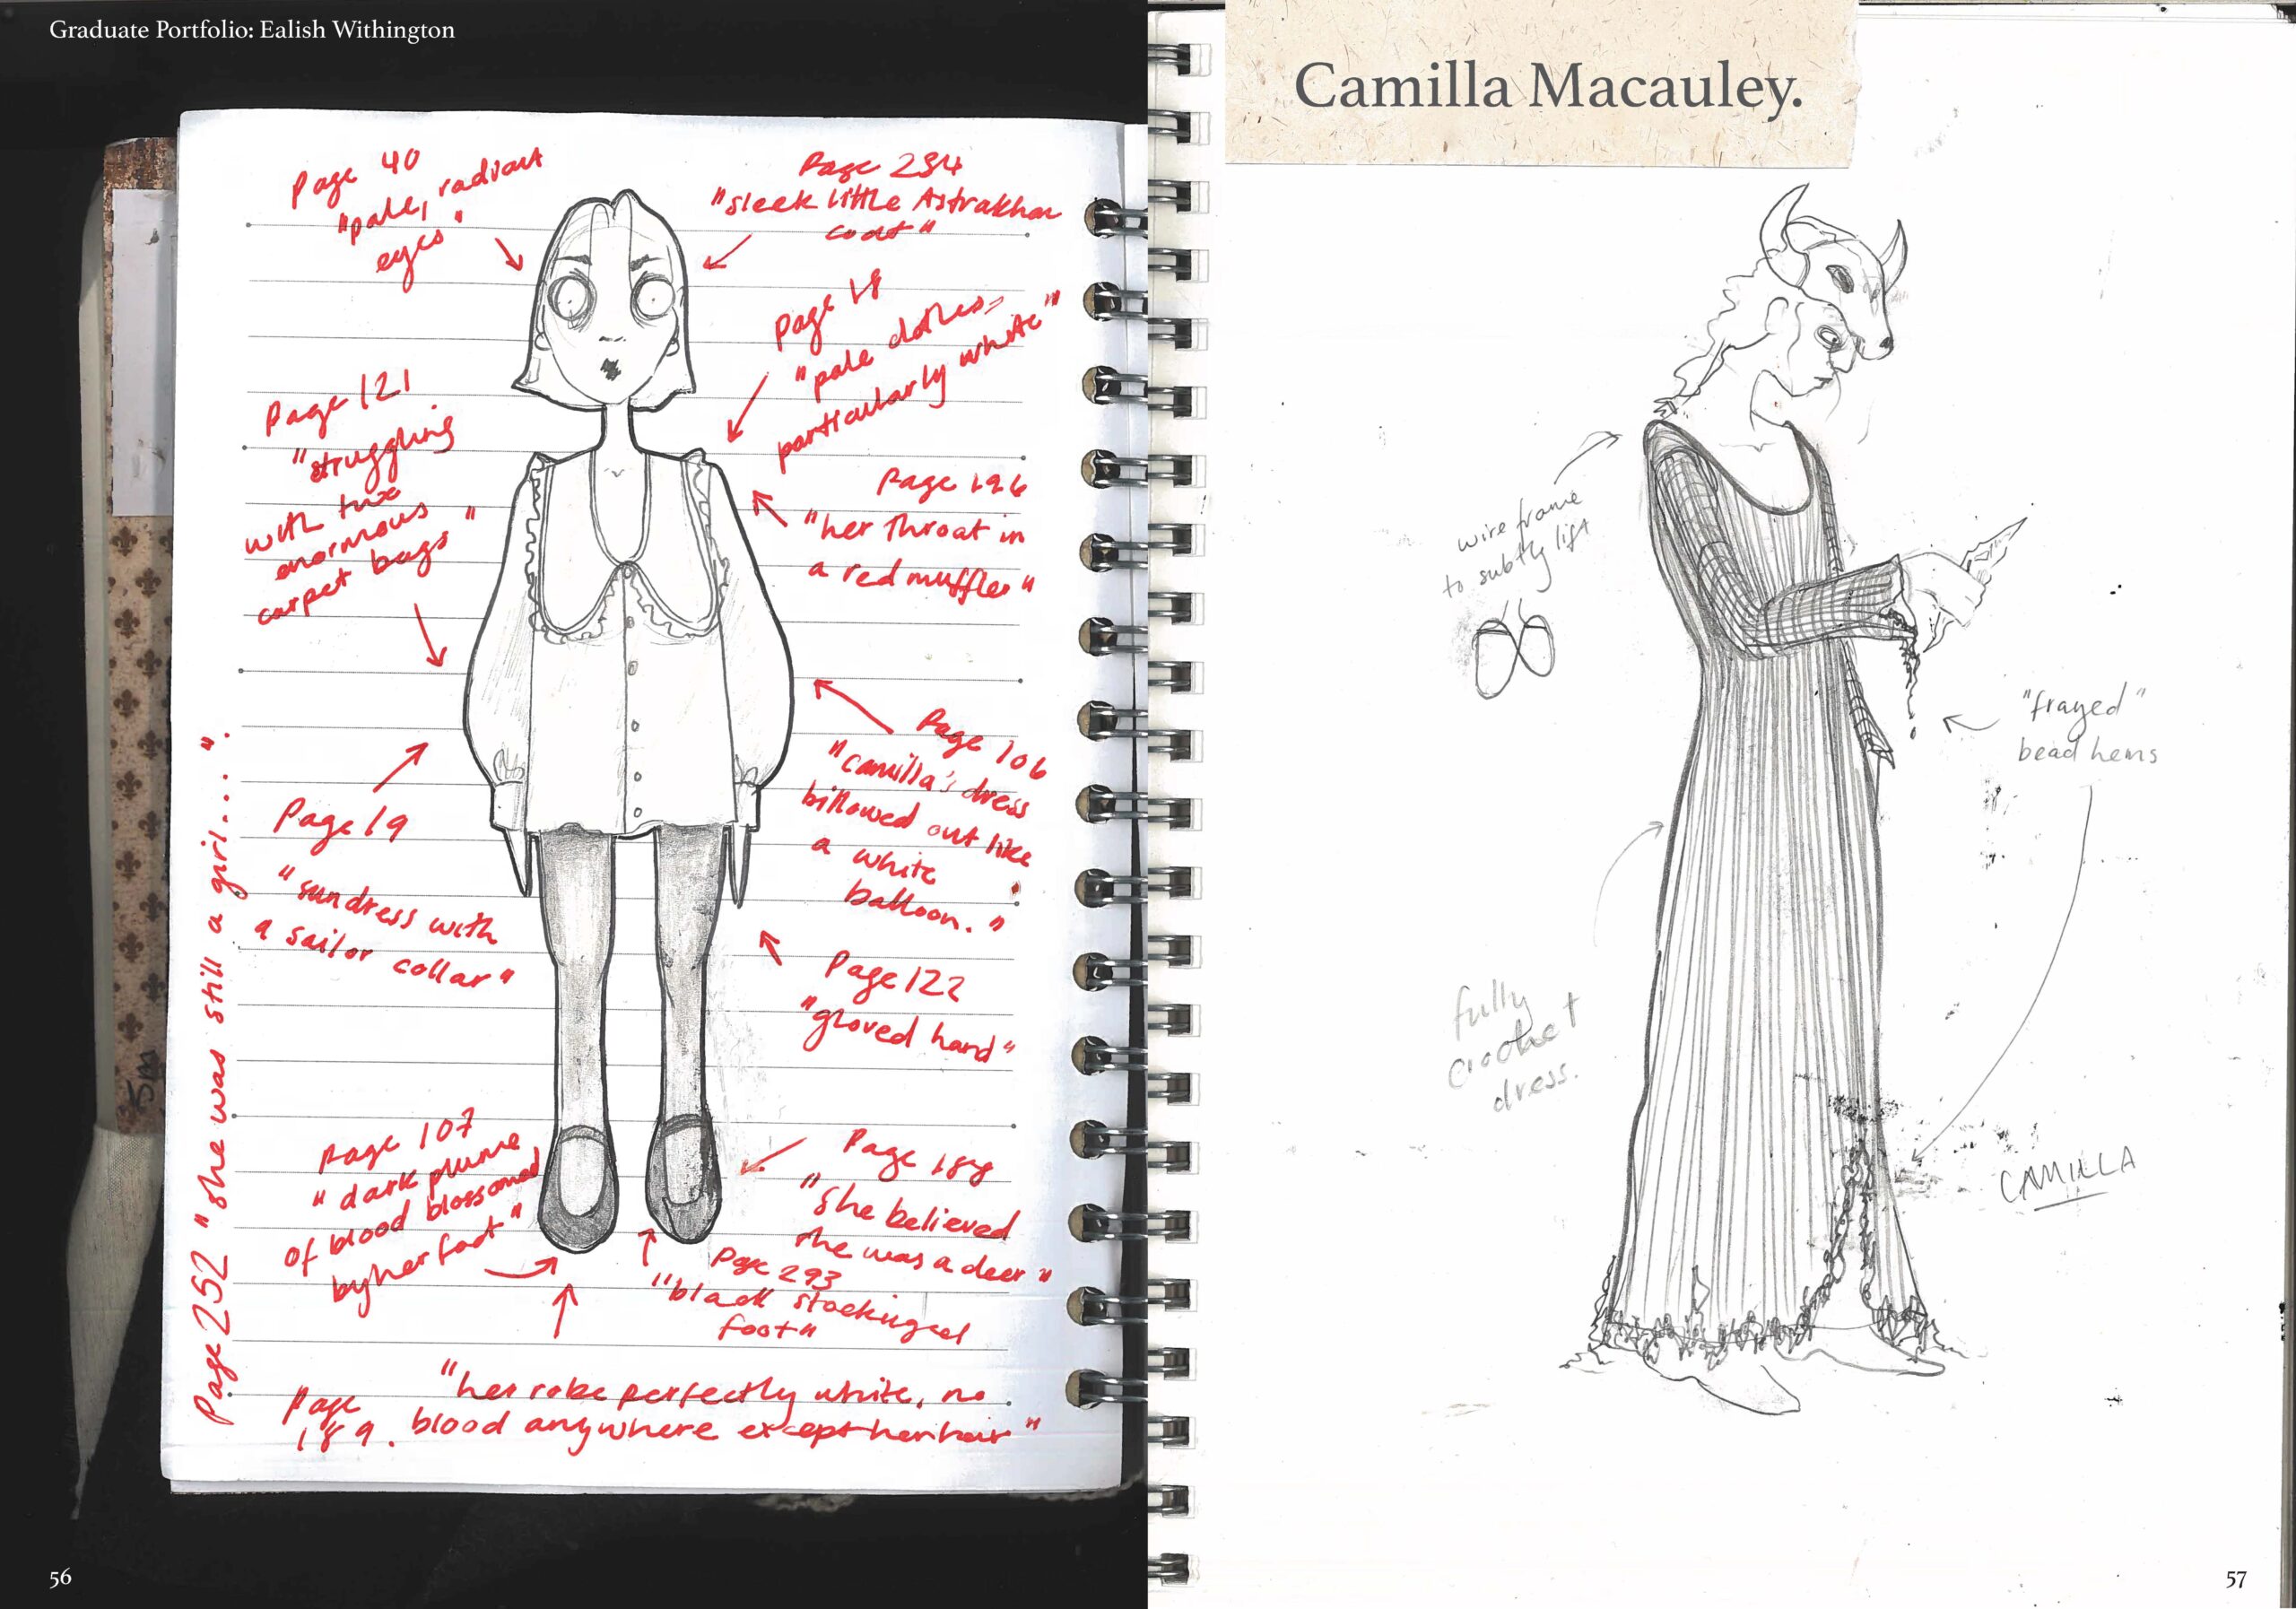 Graduate Portfolio: Ealish Withington
Page 40
"pale, radiant
eyes"
Page 234
"sleek little Astrakhan
coat"
Page 18
"pale clothes,
particularly white"
Page 121
"struggling
with two
enormous
carpet bags"
Page 196
"her throat in
a red muffler"
Page 106
"Camilla's dress
billowed out like
a white
balloon."
Page 19
"sundress with
a sailor collar"
Page 122
"gloved hand"
Page 107
"dark plume
of blood blossomed
by her foot"
Page 188
"She believed
she was a deer"
Page 293
"black stockinged
foot"
Page
189.
"her robe perfectly white, no
blood anywhere except her hair"
Page 252 "she was still a girl....".
56
Camilla Macauley.
wire frame
to subtly lift
"frayed"
bead hems
fully
crochet
dress.
CAMILLA
57